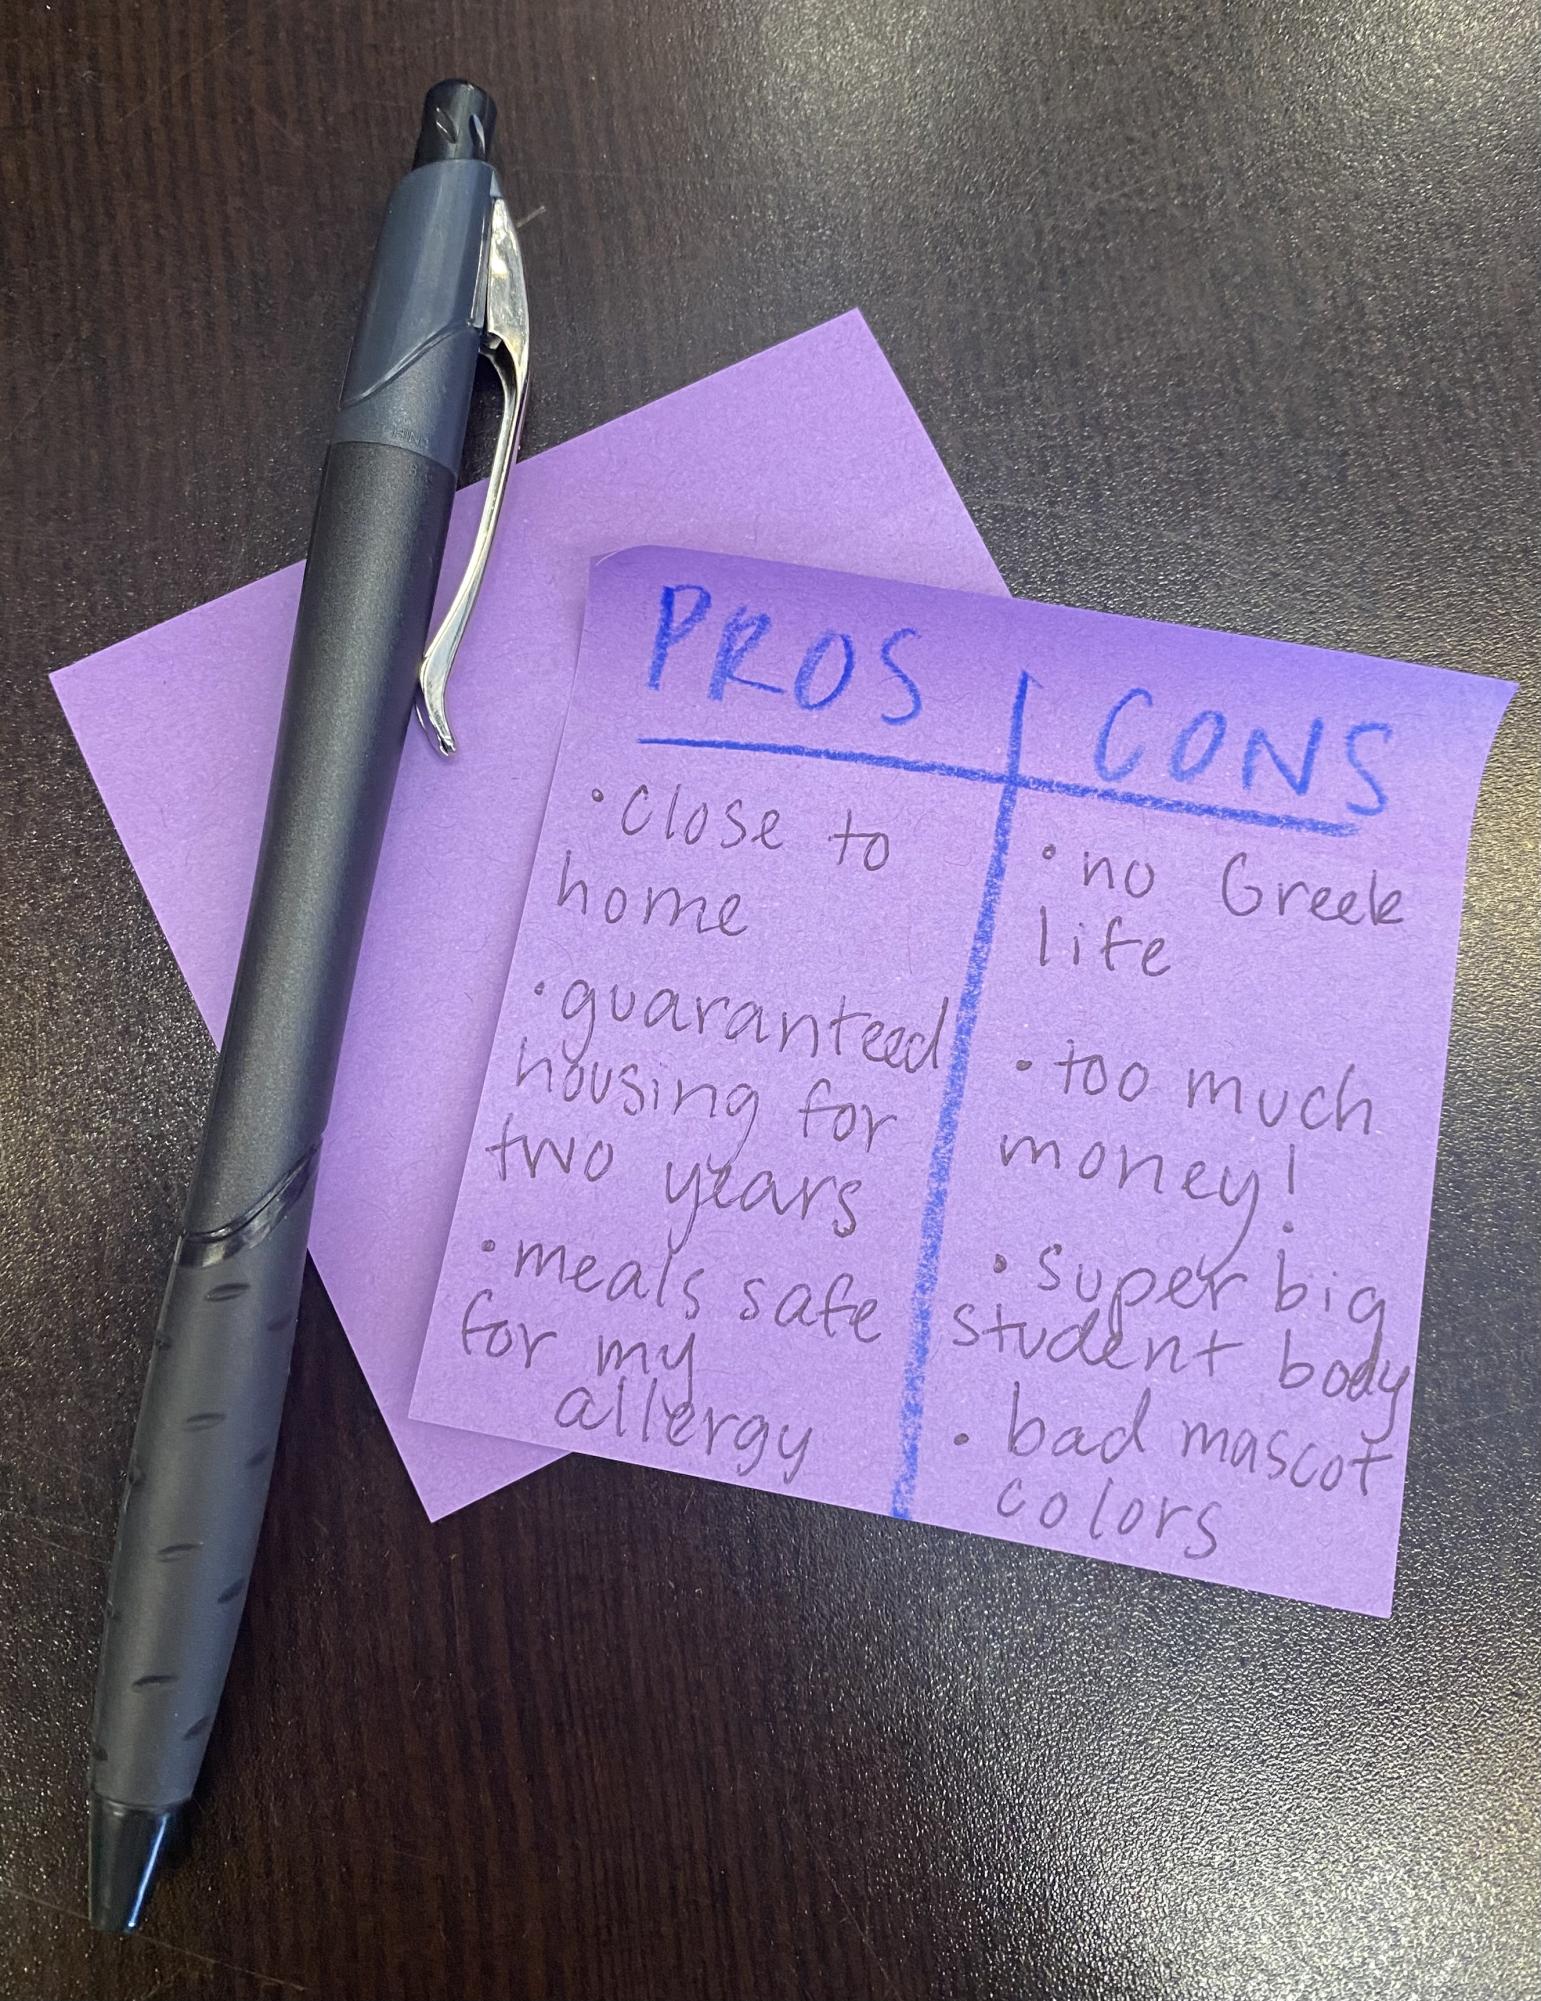 PROS
• close to
home
• guaranteed
housing for
two years
• meals safe
for my
allergy
CONS
• no Greek
life
• too much
money!
• super big
student body
• bad mascot
colors